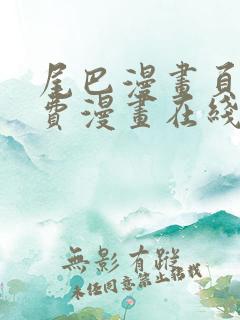 尾巴漫畫頁
費漫畫在綫
無影有蹤
未經同意禁止轉載